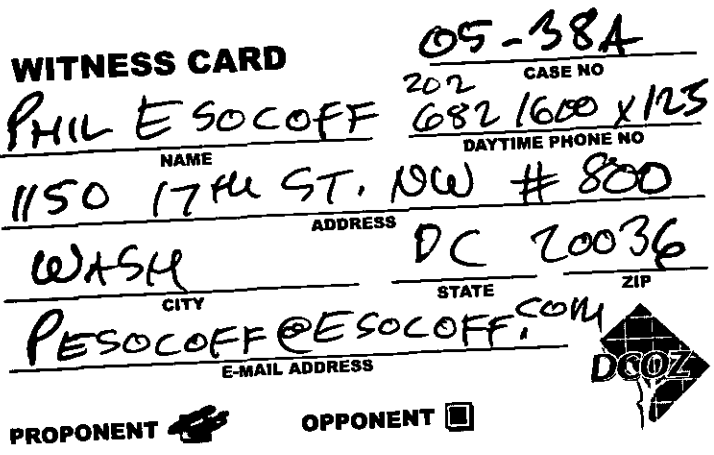 WITNESS CARD
05-38A
CASE NO
PHIL ESOCOFF
202
682 1600 x125
NAME
DAYTIME PHONE NO
1150 17TH ST. NW # 800
ADDRESS
WASH DC 20036
CITY STATE ZIP
PESOCOFF@ESOCOFF.COM
E-MAIL ADDRESS
DCOZ
PROPONENT OPPONENT